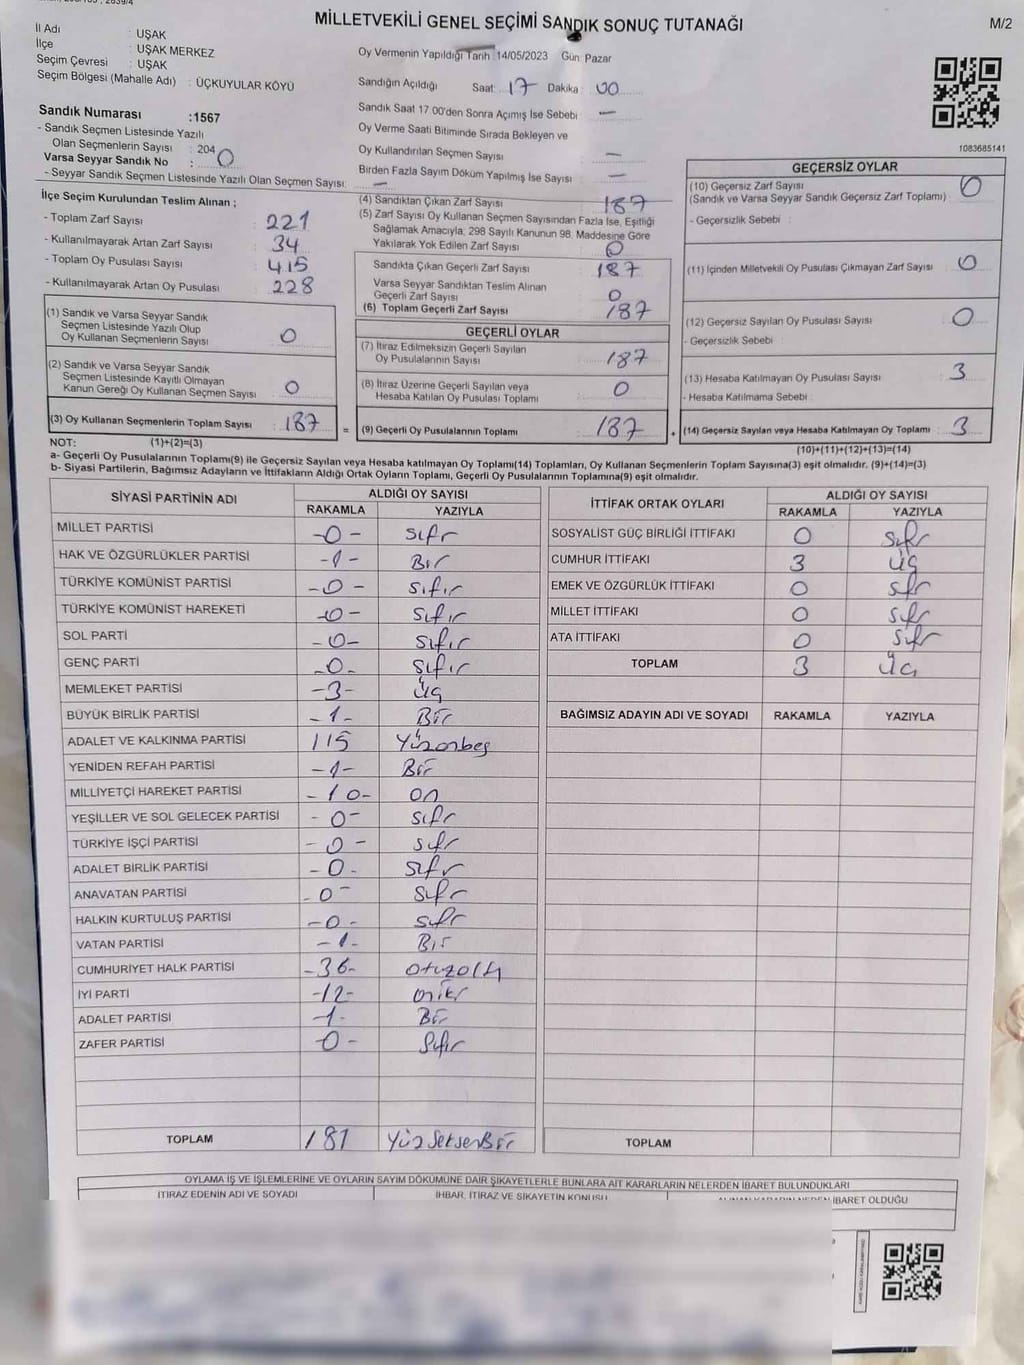 MİLLETVEKİLİ GENEL SEÇİMİ SANDIK SONUÇ TUTANAĞI
M/2
İl Adı : UŞAK
İlçe : UŞAK MERKEZ
Seçim Çevresi : UŞAK
Seçim Bölgesi (Mahalle Adı) : ÜÇKUYULAR KÖYÜ
Oy Vermenin Yapıldığı Tarih :14/05/2023 Gün: Pazar
Sandığın Açıldığı Saat: 17 Dakika : 00
Sandık Saat 17 00'den Sonra Açımış İse Sebebi —
Oy Verme Saati Bitiminde Sırada Bekleyen ve
Oy Kullandırılan Seçmen Sayısı —
Birden Fazla Sayım Döküm Yapılmış İse Sayısı —
1083685141
Sandık Numarası :1567
- Sandık Seçmen Listesinde Yazılı
Olan Seçmenlerin Sayısı : 204
Varsa Seyyar Sandık No : 0
- Seyyar Sandık Seçmen Listesinde Yazılı Olan Seçmen Sayısı: —
İlçe Seçim Kurulundan Teslim Alınan ;
- Toplam Zarf Sayısı : 221
- Kullanılmayarak Artan Zarf Sayısı : 34
- Toplam Oy Pusulası Sayısı : 415
- Kullanılmayarak Artan Oy Pusulası : 228
(1) Sandık ve Varsa Seyyar Sandık
Seçmen Listesinde Yazılı Olup
Oy Kullanan Seçmenlerin Sayısı : 0
(2) Sandık ve Varsa Seyyar Sandık
Seçmen Listesinde Kayıtlı Olmayan
Kanun Gereği Oy Kullanan Seçmen Sayısı : 0
(3) Oy Kullanan Seçmenlerin Toplam Sayısı : 187
(4) Sandıktan Çıkan Zarf Sayısı : 187
(5) Zarf Sayısı Oy Kullanan Seçmen Sayısından Fazla İse, Eşitliği
Sağlamak Amacıyla; 298 Sayılı Kanunun 98. Maddesine Göre
Yakılarak Yok Edilen Zarf Sayısı : 0
Sandıkta Çıkan Geçerli Zarf Sayısı : 187
Varsa Seyyar Sandıktan Teslim Alınan
Geçerli Zarf Sayısı : 0
(6) Toplam Geçerli Zarf Sayısı : 187
GEÇERLİ OYLAR
(7) İtiraz Edilmeksizin Geçerli Sayılan
Oy Pusulalarının Sayısı : 187
(8) İtiraz Üzerine Geçerli Sayılan veya
Hesaba Katılan Oy Pusulası Toplamı : 0
= (9) Geçerli Oy Pusulalarının Toplamı : 187
GEÇERSİZ OYLAR
(10) Geçersiz Zarf Sayısı : 0
(Sandık ve Varsa Seyyar Sandık Geçersiz Zarf Toplamı)
- Geçersizlik Sebebi :
(11) İçinden Milletvekili Oy Pusulası Çıkmayan Zarf Sayısı : 0
(12) Geçersiz Sayılan Oy Pusulası Sayısı : 0
- Geçersizlik Sebebi
(13) Hesaba Katılmayan Oy Pusulası Sayısı : 3
- Hesaba Katılmama Sebebi
+ (14) Geçersiz Sayılan veya Hesaba Katılmayan Oy Toplamı : 3
NOT: (1)+(2)=(3)
(10)+(11)+(12)+(13)=(14)
a- Geçerli Oy Pusulalarının Toplamı(9) ile Geçersiz Sayılan veya Hesaba katılmayan Oy Toplamı(14) Toplamları, Oy Kullanan Seçmenlerin Toplam Sayısına(3) eşit olmalıdır. (9)+(14)=(3)
b- Siyasi Partilerin, Bağımsız Adayların ve İttifakların Aldığı Ortak Oyların Toplamı, Geçerli Oy Pusulalarının Toplamına(9) eşit olmalıdır.
SİYASİ PARTİNİN ADI ALDIĞI OY SAYISI
RAKAMLA YAZIYLA
MİLLET PARTİSİ -0- Sıfır
HAK VE ÖZGÜRLÜKLER PARTİSİ -1- Bir
TÜRKİYE KOMÜNİST PARTİSİ -0- Sıfır
TÜRKİYE KOMÜNİST HAREKETİ -0- Sıfır
SOL PARTİ -0- Sıfır
GENÇ PARTİ -0- Sıfır
MEMLEKET PARTİSİ -3- Üç
BÜYÜK BİRLİK PARTİSİ -1- Bir
ADALET VE KALKINMA PARTİSİ 115 Yüzonbeş
YENİDEN REFAH PARTİSİ -1- Bir
MİLLİYETÇİ HAREKET PARTİSİ -10- on
YEŞİLLER VE SOL GELECEK PARTİSİ -0- Sıfır
TÜRKİYE İŞÇİ PARTİSİ -0- Sıfır
ADALET BİRLİK PARTİSİ -0- Sıfır
ANAVATAN PARTİSİ -0- Sıfır
HALKIN KURTULUŞ PARTİSİ -0- Sıfır
VATAN PARTİSİ -1- Bir
CUMHURİYET HALK PARTİSİ -36- otuzaltı
İYİ PARTİ -12- oniki
ADALET PARTİSİ -1- Bir
ZAFER PARTİSİ -0- Sıfır
TOPLAM 181 YüzSeksenBir
İTTİFAK ORTAK OYLARI ALDIĞI OY SAYISI
RAKAMLA YAZIYLA
SOSYALİST GÜÇ BİRLİĞİ İTTİFAKI 0 Sıfır
CUMHUR İTTİFAKI 3 Üç
EMEK VE ÖZGÜRLÜK İTTİFAKI 0 Sıfır
MİLLET İTTİFAKI 0 Sıfır
ATA İTTİFAKI 0 Sıfır
TOPLAM 3 Üç
BAĞIMSIZ ADAYIN ADI VE SOYADI RAKAMLA YAZIYLA
TOPLAM
OYLAMA İŞ VE İŞLEMLERİNE VE OYLARIN SAYIM DÖKÜMÜNE DAİR ŞİKAYETLERLE BUNLARA AİT KARARLARIN NELERDEN İBARET BULUNDUKLARI
İTİRAZ EDENİN ADI VE SOYADI İHBAR, İTİRAZ VE ŞİKAYETİN KONUSU ALINAN KARARIN NEDEN İBARET OLDUĞU